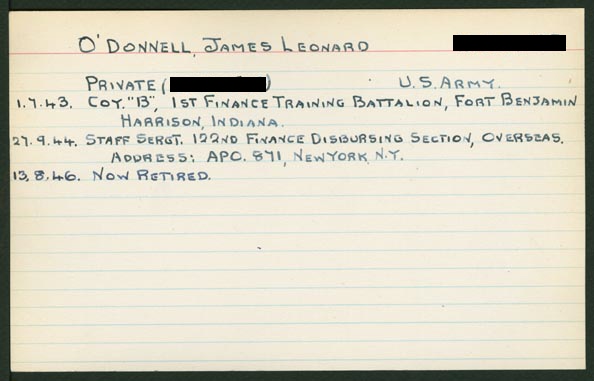 O'DONNELL, JAMES LEONARD
PRIVATE ( ) U.S. ARMY.
1.7.43. COY. "B", 1ST FINANCE TRAINING BATTALION, FORT BENJAMIN
HARRISON, INDIANA.
27.9.44. STAFF SERGT. 122ND FINANCE DISBURSING SECTION, OVERSEAS.
ADDRESS: APO. 871, NEW YORK, N.Y.
13.8.46. NOW RETIRED.